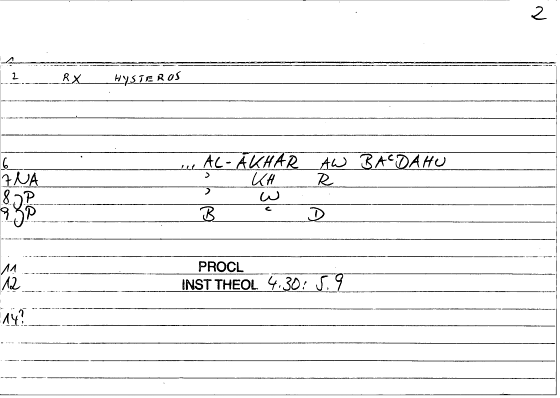 2
1
2 RX HYSTEROS
6 ... AL-ĀKHAR AW BAᶜDAHU
7 NA ʾ KH R
8 JP ʾ W
9 JP B ᶜ D
11 PROCL
12 INST THEOL 4.30: 5.9
14?